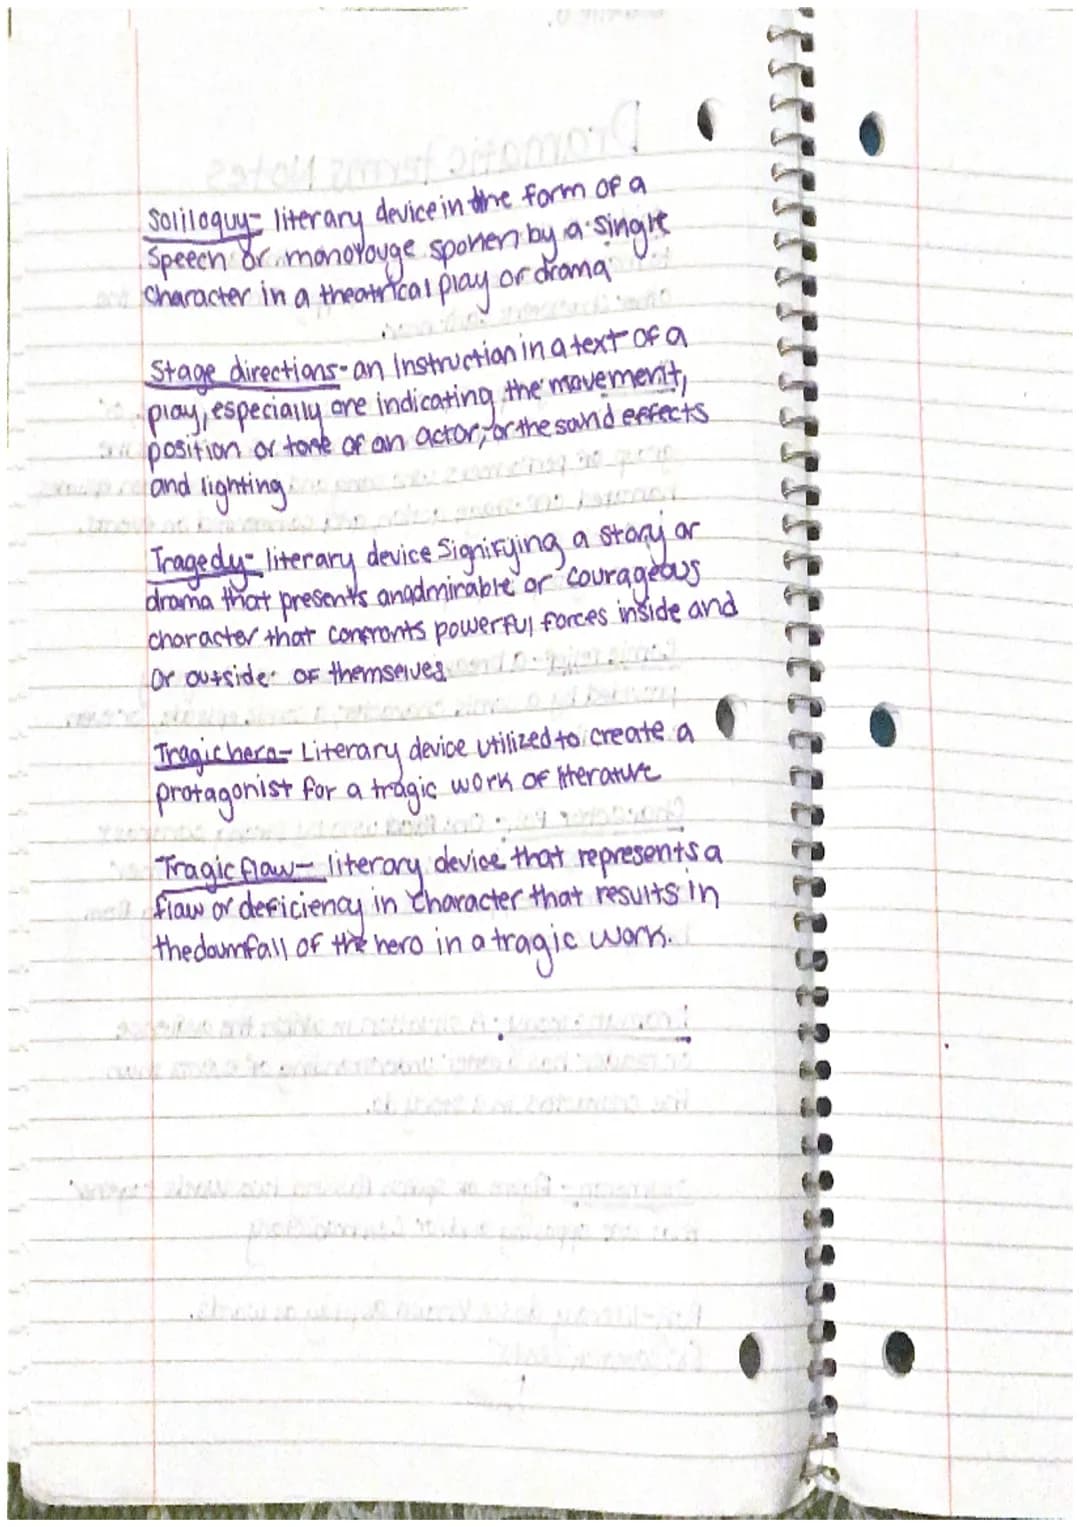 Soliloquy- literary device in the form of a
Speech or monolouge spoken by a single
Character in a theatrical play or drama
Stage directions- an Instruction in a text of a
play, especially one indicating the movement,
position or tone of an actor, or the sound effects
and lighting
Tragedy- literary device Signifying a story or
drama that presents an admirable or courageous
character that confronts powerful forces inside and
Or outside of themselves
Tragic hero- Literary device utilized to create a
protagonist for a tragic work of literature
Tragic flaw- literary device that represents a
flaw or deficiency in character that results in
the downfall of the hero in a tragic work.